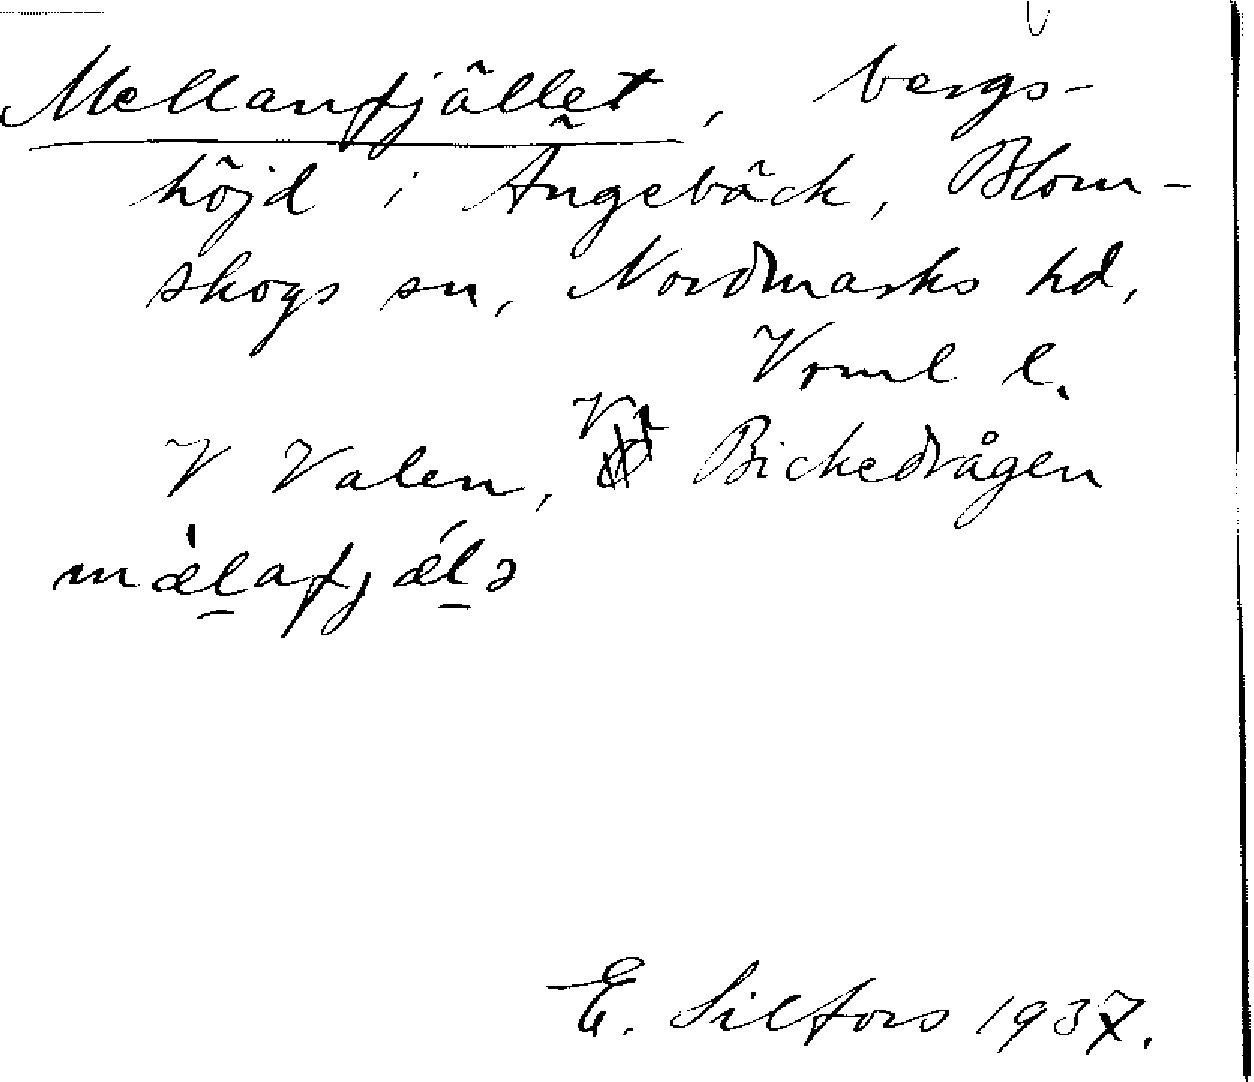 Mellanfjället, bergs-
höjd i Ängebäck, Blom-
skogs sn, Nordmarks hd,
Vrml l.
V Valen, V Bickedrågen
mæ̀l̠afjǽl̠ə
E. Silfors 1937.